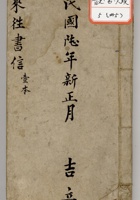 民國陆年新正月 吉立
來往書信 壹本